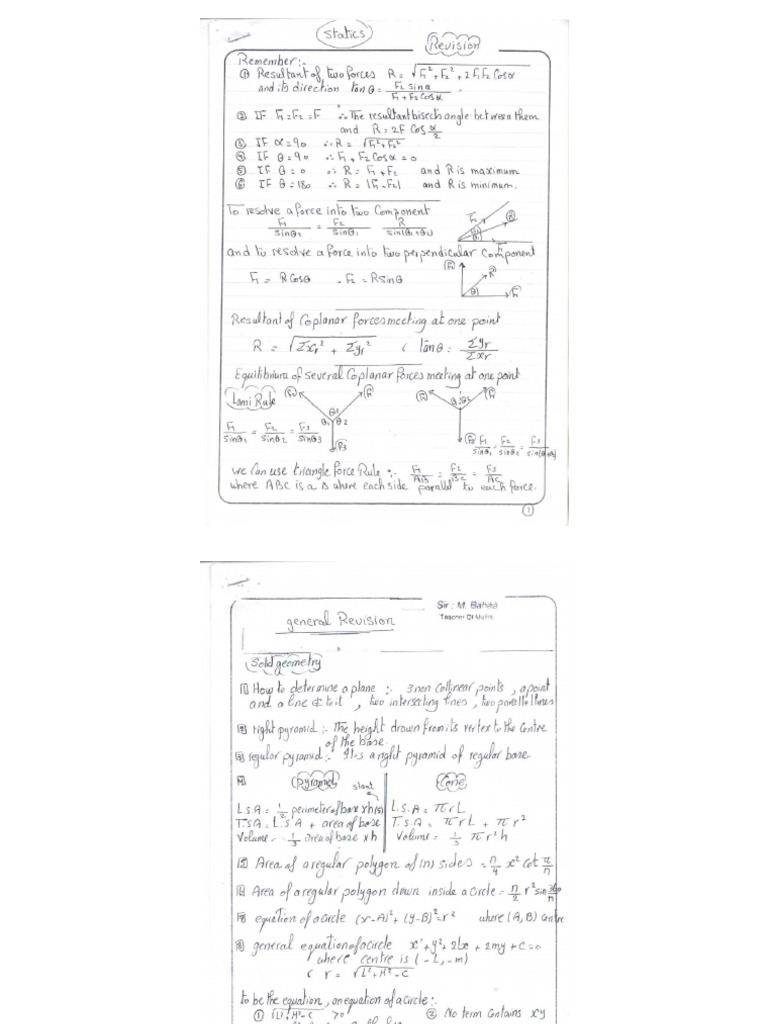 Statics
Revision
Remember:-
① Resultant of two forces R = √F₁² + F₂² + 2F₁F₂ Cosα
and its direction tanθ = F₂ sinα / F₁ + F₂ Cosα
② IF F₁=F₂=F ∴ The resultant bisects angle between them
and R = 2F Cos α/2
③ IF α = 90 ∴ R = √F₁² + F₂²
④ IF θ = 90 ∴ F₁ + F₂ Cosα = 0
⑤ IF θ = 0 ∴ R = F₁ + F₂ and R is maximum
⑥ IF θ = 180 ∴ R = |F₁ - F₂| and R is minimum.
To resolve a force into two Component
F₁/sinθ₂ = F₂/sinθ₁ R/sin(θ₁+θ₂)
and to resolve a force into two perpendicular Component
F₁ = R Cosθ . F₂ = R sinθ
Resultant of Coplanar forces meeting at one point
R = √Σxr² + Σyr² ( tanθ = Σyr/Σxr
Equilibrium of several Coplanar forces meeting at one point
Lami Rule
F₁/sinθ₁ = F₂/sinθ₂ = F₃/sinθ₃
F₁/sinθ₁ = F₂/sinθ₂ = F₃/sin(θ+θ)
we Can use triangle force Rule :- F₁/AB = F₂/BC = F₃/AC
where ABC is a Δ where each side parallel to each force.
①
Sir : M. Bahaa
Teacher Of Maths
general Revision
Solid geometry
① How to determine a plane :- 3 non Collinear points , a point
and a line ∉ to it , two intersecting lines , two parallel lines
② right pyramid :- The height drown from its vertex to the Centre
of the base.
③ regular pyramid :- It is a right pyramid of regular base
④ Pyramid Cone
slant
L.S.A = 1/2 perimeter of base x h(s) L.S.A = πrL
T.S.A = L.S.A + area of base T.S.A = πrL + πr²
Volume = 1/3 area of base x h Volume = 1/3 πr²h
⑤ Area of a regular polygon of (n) sides = n/4 x² Cot π/n
⑥ Area of a regular polygon drawn inside a Circle = n/2 r² sin 360/n
⑦ equation of a circle (x-A)² + (y-B)² = r² where (A, B) Centre
⑧ general equation of a circle x² + y² + 2Lx + 2my + C = 0
where centre is (-L, -m)
( r = √L² + M² - C
to be the equation , an equation of a circle :-
① √L² + M² - C > 0 ② No term Contains xy